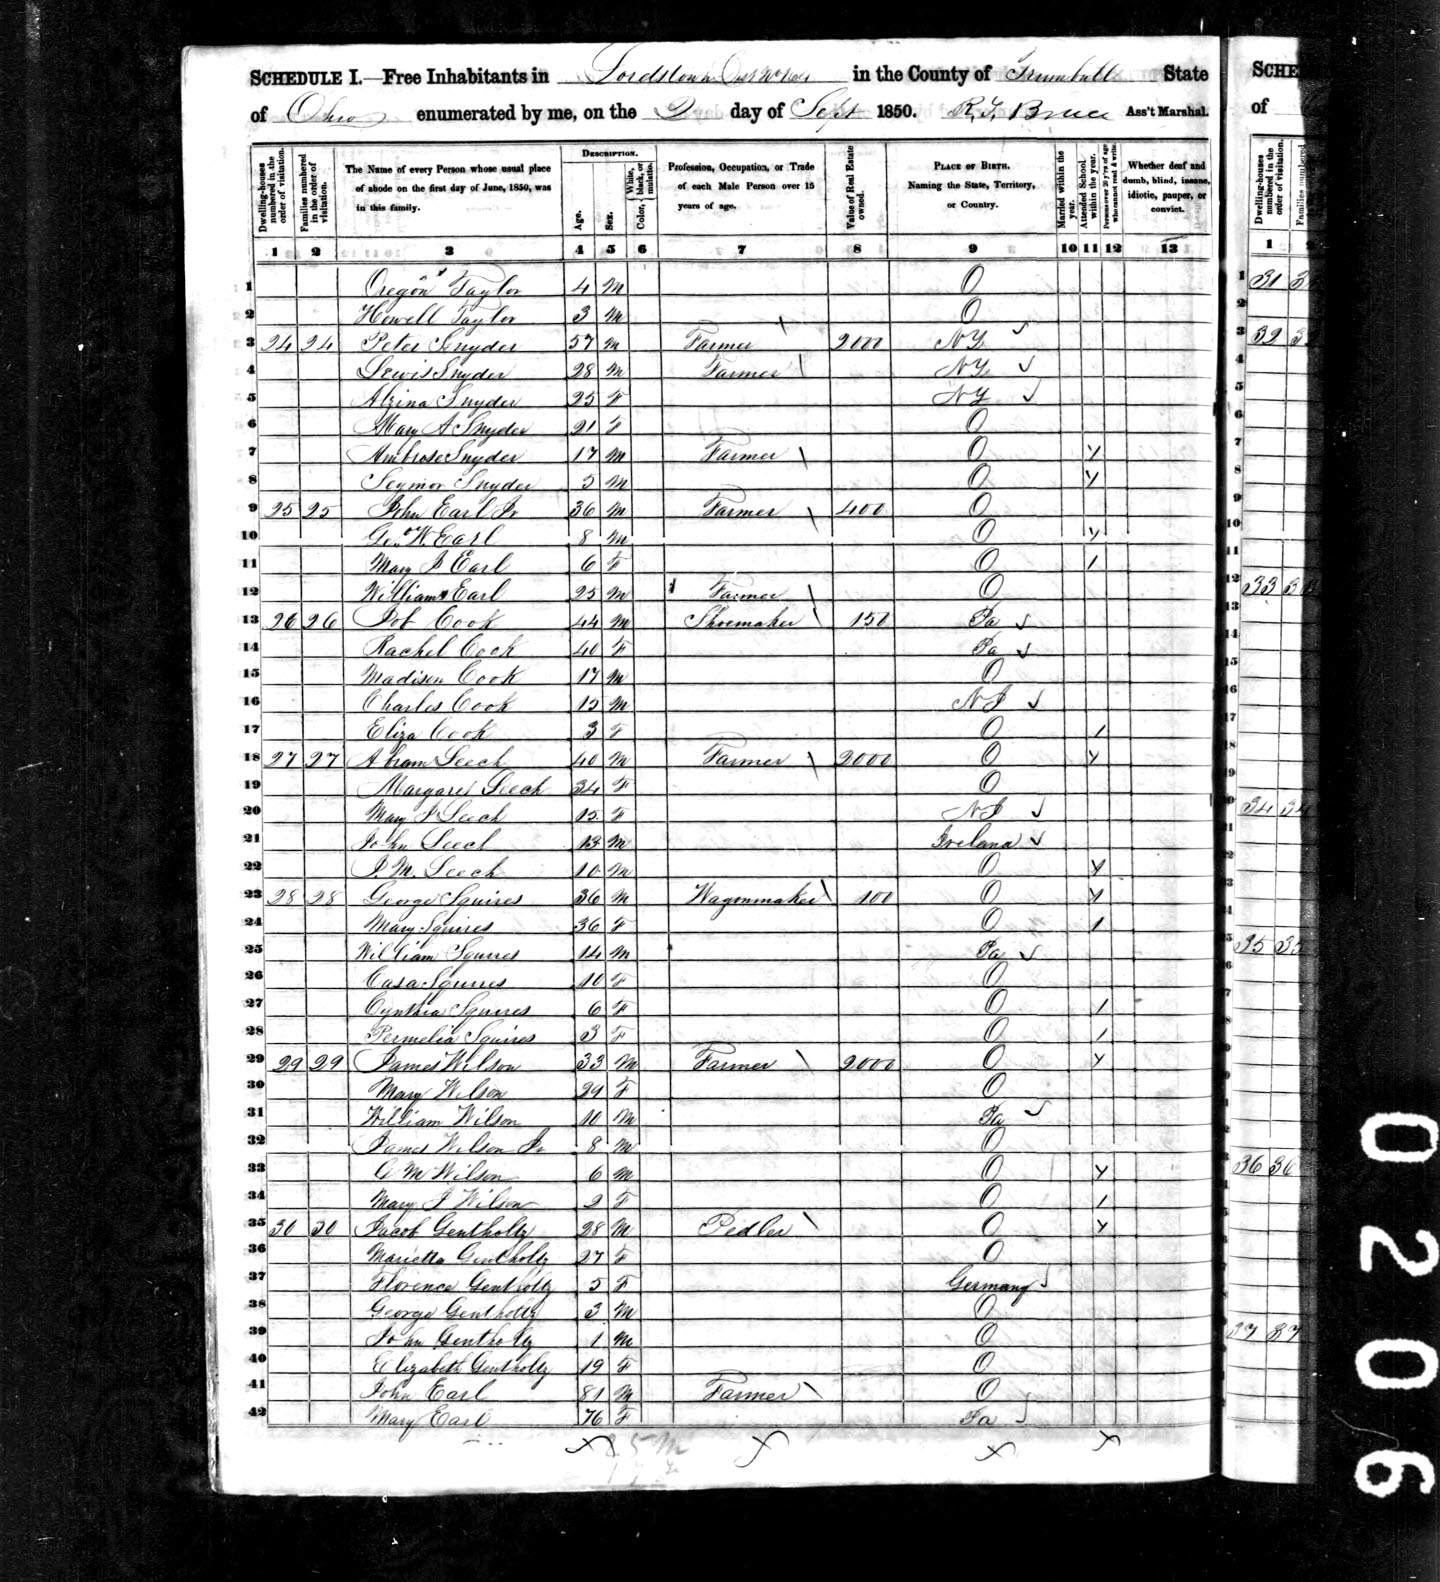 SCHEDULE I.—Free Inhabitants in Lordstown in the County of Trumbull State
of Ohio enumerated by me, on the 2 day of Sept 1850. R. F. Bruce Ass't Marshal.
Dwelling-houses numbered in the order of visitation. Families numbered in the order of visitation. The Name of every Person whose usual place of abode on the first day of June, 1850, was in this family. DESCRIPTION. Age. Sex. Color, White, black, or mulatto. Profession, Occupation, or Trade of each Male Person over 15 years of age. Value of Real Estate owned. PLACE OF BIRTH. Naming the State, Territory, or Country. Married within the year. Attended School within the year. Persons over 20 y'rs of age who cannot read & write. Whether deaf and dumb, blind, insane, idiotic, pauper, or convict.
1 2 3 4 5 6 7 8 9 10 11 12 13
1 Oregon Taylor 4 M O
2 Howell Taylor 3 M O
3 24 24 Peter Snyder 57 M Farmer 2000 NY
4 Lewis Snyder 28 M Farmer NY
5 Alzina Snyder 25 F NY
6 Mary A Snyder 21 F O
7 Ambrose Snyder 17 M Farmer O
8 Seymor Snyder 5 M O
9 25 25 John Earl Jr 36 M Farmer 400 O
10 Geo W. Earl 8 M O
11 Mary J Earl 6 F O
12 William Earl 25 M Farmer O
13 26 26 Job Cook 44 M Shoemaker 150 Pa
14 Rachel Cook 40 F Pa
15 Madison Cook 17 M O
16 Charles Cook 15 M NJ
17 Eliza Cook 3 F O
18 27 27 Abram Leech 40 M Farmer 2000 O
19 Margaret Leech 34 F O
20 Mary J Leech 15 F NJ
21 John Leech M Ireland
22 J M. Leech 10 M O
23 28 28 George Squires 36 M Wagonmaker 100 O
24 Mary Squires 36 F O
25 William Squires 14 M Pa
26 Casa Squires 10 F O
27 Cynthia Squires 6 F O
28 Permelia Squires 3 F O
29 29 29 James Wilson 33 M Farmer 2000 O
30 Mary Wilson 29 F O
31 William Wilson 10 M Pa
32 James Wilson Jr 8 M O
33 C M Wilson 6 M O
34 Mary J Wilson 2 F O
35 30 30 Jacob Gentholtz 28 M Pedler O
36 Marietta Gentholtz 27 F O
37 Florence Gentholtz 5 F Germany
38 George Gentholtz 3 M O
39 John Gentholtz 1 M O
40 Elizabeth Gentholtz 19 F O
41 John Earl 81 M Farmer O
42 Mary Earl 76 F Pa
SCHE
of
Dwelling-houses numbered in the order of visitation. Families numbered
1
31
32
33
34 34
35 35
36 36
37 37
0206